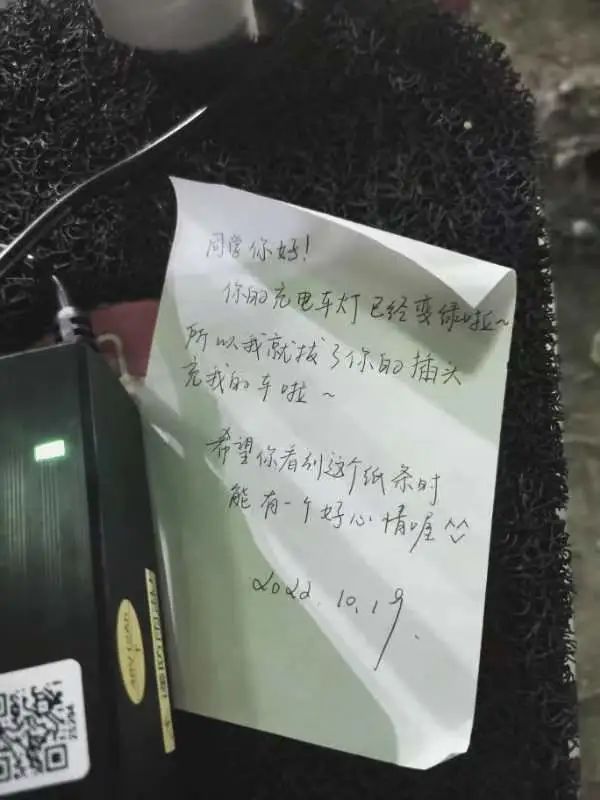 同学你好!
你的充电车灯已经变绿啦~
所以我就拔了你的插头
充我的车啦~
希望你看到这个纸条时
能有一个好心情喔^^
2022.10.19.